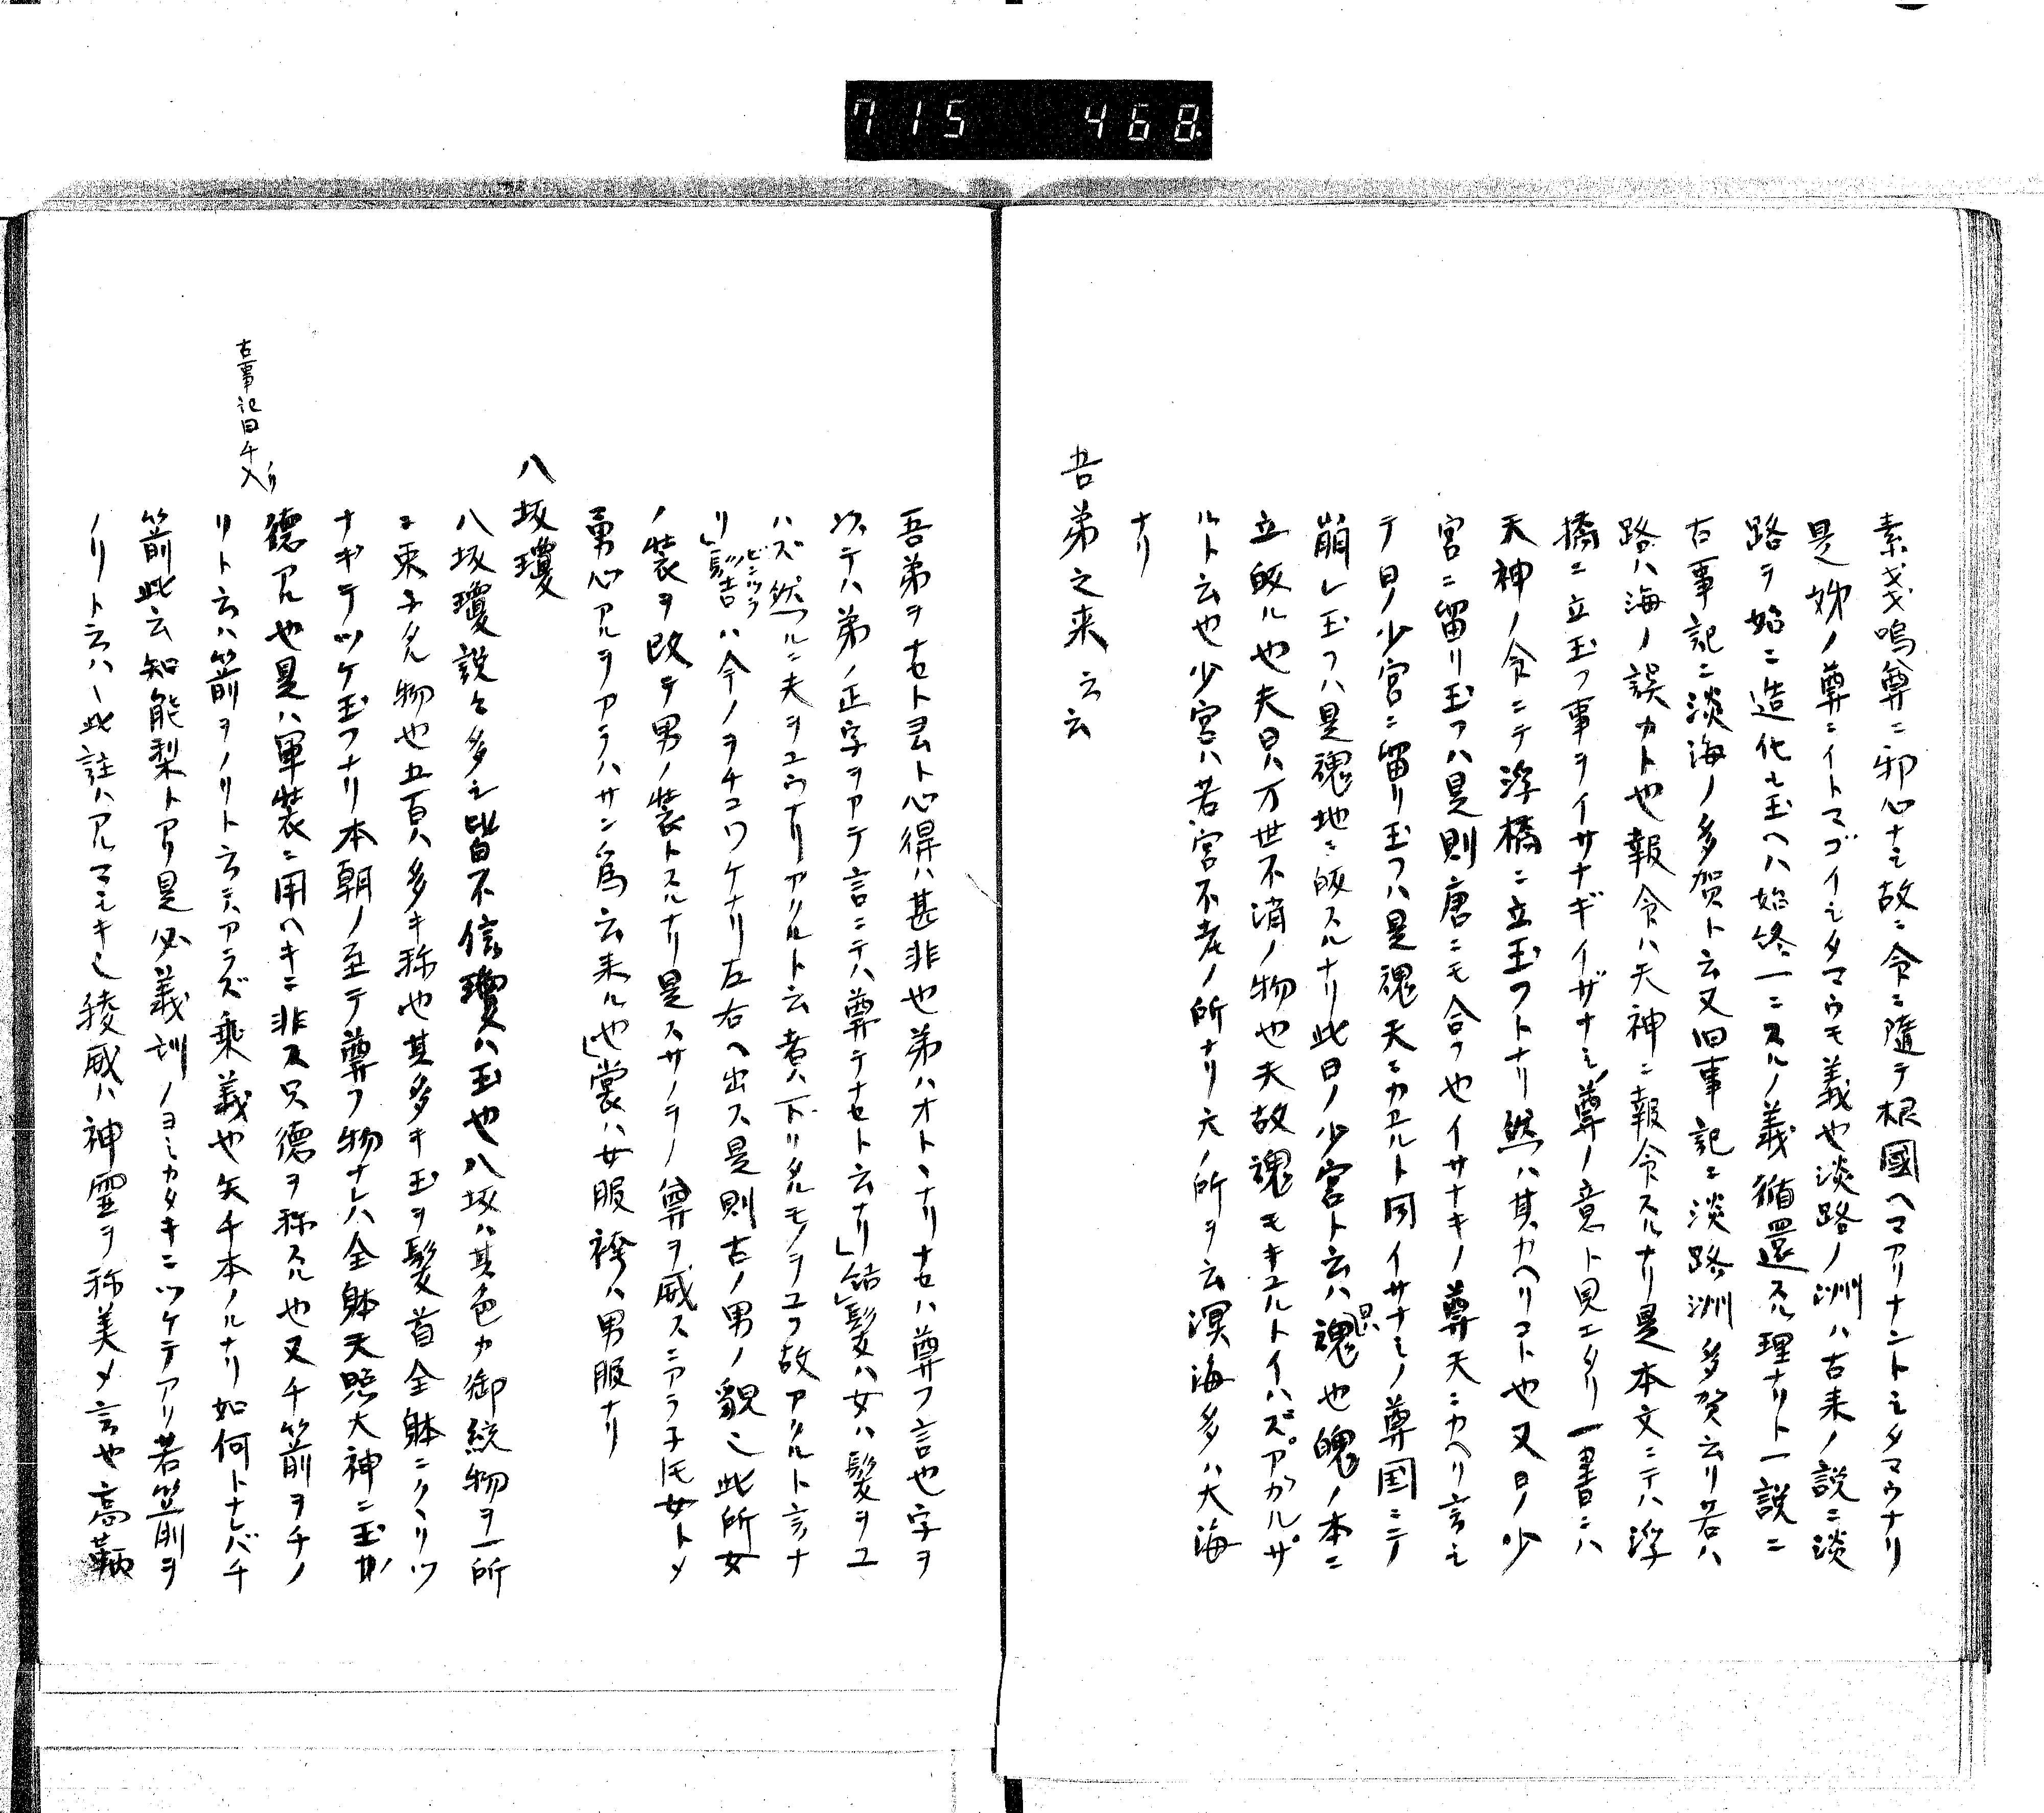 715 468
素戔嗚尊ニ邪心ナシ故ニ命ニ隨テ根國ヘマアリナントシタマウナリ
是姉ノ尊ニイトマゴイシタマウモ義也淡路ノ洲ハ古来ノ説ニ淡
路ヲ始ニ造化シ玉ヘハ始終一ニスルノ義循還スル理ナリト一説ニ
古事記ニ淡海ノ多賀ト云又旧事記ニ淡路洲多賀云リ若ハ
路ハ海ノ誤カト也報命ハ天神ニ報命スルナリ是本文ニテハ浮
橋ニ立玉フ事ヲイサナギイザナミ尊ノ意ト見エタリ一書ニハ
天神ノ命ニテ浮橋ニ立玉フトナリ然ハ其カヘリコト也又日ノ少
宮ニ留リ玉フハ是則唐ニモ合フ也イサナキノ尊天ニカヘリ言シ
テ日ノ少宮ニ留リ玉フハ是魂天ニカエルト同イサナミノ尊国ニテ
崩レ玉フハ是魂地ニ皈スルナリ此日ノ少宮ト云ハ魂也魄ノ本ニ
立皈ル也夫日ハ万世不消ノ物也夫故魂モキユルトイハズアカルザ
ルト云也少宮ハ若宮不老ノ所ナリ六ノ所ヲ云溟海多ハ大海
ナリ
吾弟之来云云
吾弟ヲナセトヨムト心得ハ甚非也弟ハオトヽナリナセハ尊フ言也字ヲ
以テハ弟ノ正字ヲアテ言ニテハ尊テナセト云ナリ」結髮ハ女ハ髮ヲユ
ハズ然ルニ夫ヲユウナリアリルト云者ハ下リタルモノヲユフ故アリルト言ナ
リ」髻ビンツラハ今ノヲチコワケナリ左右ヘ出ス是則古ノ男ノ貌也此所女
ノ裝ヲ改テ男ノ裝トスルナリ是スサノヲノ尊ヲ威スニアラ子ドモ女トメ
勇心アルヲアラハサン為云来ル也」裳ハ女服袴ハ男服ナリ
八坂瓊
八坂瓊説々多シ皆不信瓊ハ玉也八坂ハ其色カ御統物ヲ一所
ニ束子タル物也五百ハ多キ称也其多キ玉ヲ髮首全躰ニクヽリツ
ナギテツケ玉フナリ本朝ノ至テ尊フ物ナレハ全躰天照大神ニ玉ガ
德アル也是ハ軍裝ニ用ヘキニ非ス只德ヲ称スル也又千箭ヲチノ
リト云ハ箭ヲノリト云テアラズ乗義也矢千本ノルナリ如何トナレバ千
古事記曰千入ノリ
箭此云知能梨トアリ是必義訓ノヨミカタキニツケテアリ若箭ヲ
ノリト云ハヽ此註ハアルマシキ也稜威ハ神霊ヲ称美メ言也高鞆